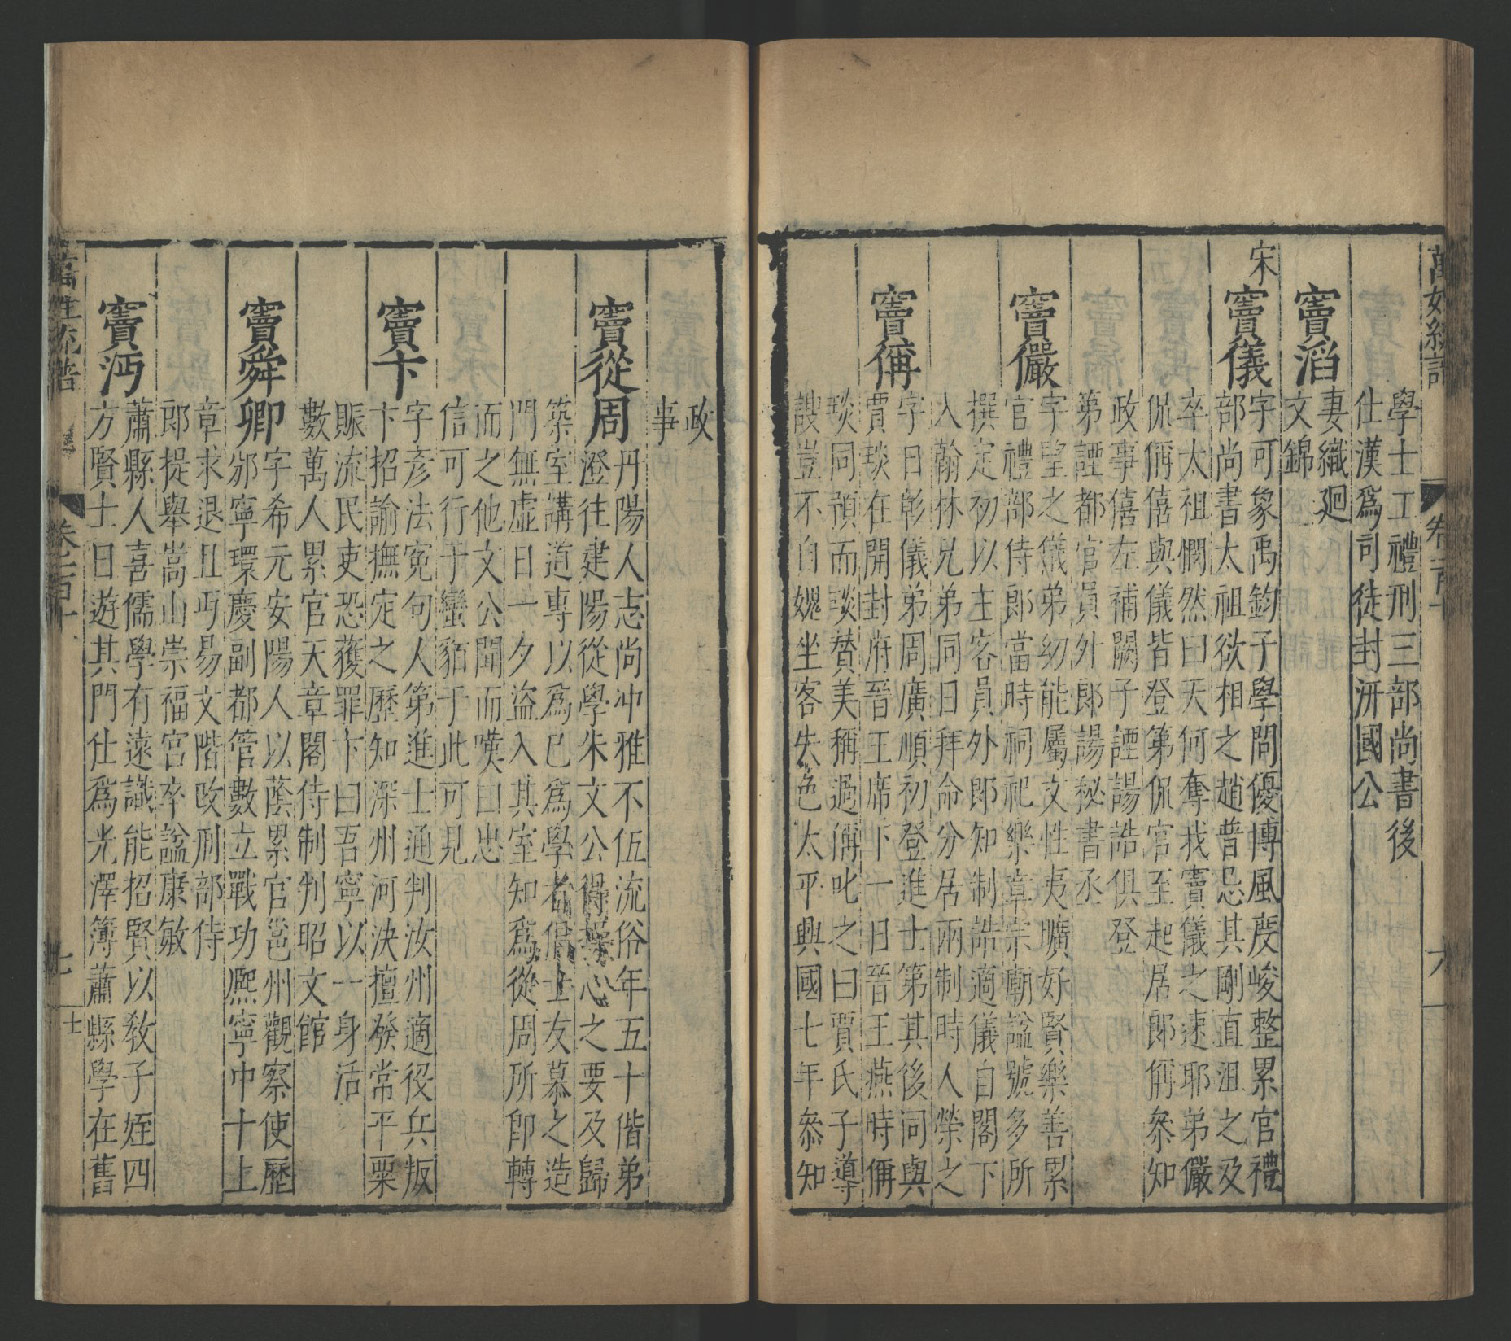 學士工禮刑三部尚書後
仕漢爲司徒封汧國公
竇滔
妻織廻
文錦
宋
竇儀
字可象禹鈞子學問優博風度峻整累官禮
部尚書太祖欲相之趙普忌其剛直沮之及
卒太祖憫然曰天何奪我竇儀之速耶弟儼
侃偁僖與儀皆登第侃官至起居郎偁叅知
政事僖左補闕子諲諹誥俱登
第諲都官員外郎諹秘書丞
竇儼
字望之儀弟幼能屬文性夷曠好賢樂善累
官禮部侍郎當時祠祀樂章宗廟諡號多所
撰定初以主客員外郎知制誥適儀自閣下
入翰林兄弟同日拜命分居兩制時人榮之
竇偁
字日彰儀弟周廣順初登進士第其後同與
賈琰在開封府晉王席下一日晉王燕時偁
琰同預而琰贊美稱過偁叱之曰賈氏子導
諛豈不自媿坐客失色太平興國七年叅知
政
事
竇從周
丹陽人志尚冲雅不伍流俗年五十偕弟
澄往建陽從學朱文公得操心之要及歸
築室講道專以爲己爲學者倡士友慕之造
門無虛日一夕盜入其室知爲從周所卽轉
而之他文公聞而嘆曰忠
信可行于蠻貊于此可見
竇卞
字彥法宛句人第進士通判汝州適役兵叛
卞招諭撫定之歷知深州河決擅發常平粟
賑流民吏恐獲罪卞曰吾寧以一身活
數萬人累官天章閣侍制判昭文館
竇舜卿
字希元安陽人以蔭累官邕州觀察使歷
邠寧環慶副都管數立戰功熙寧中十上
章求退且丐易文階改刑部侍
郎提舉嵩山崇福宮卒諡康敏
竇沔
蕭縣人喜儒學有遠識能招賢以敎子姪四
方賢士日遊其門仕爲光澤簿蕭縣學在舊
萬姓統譜
卷一百十
七